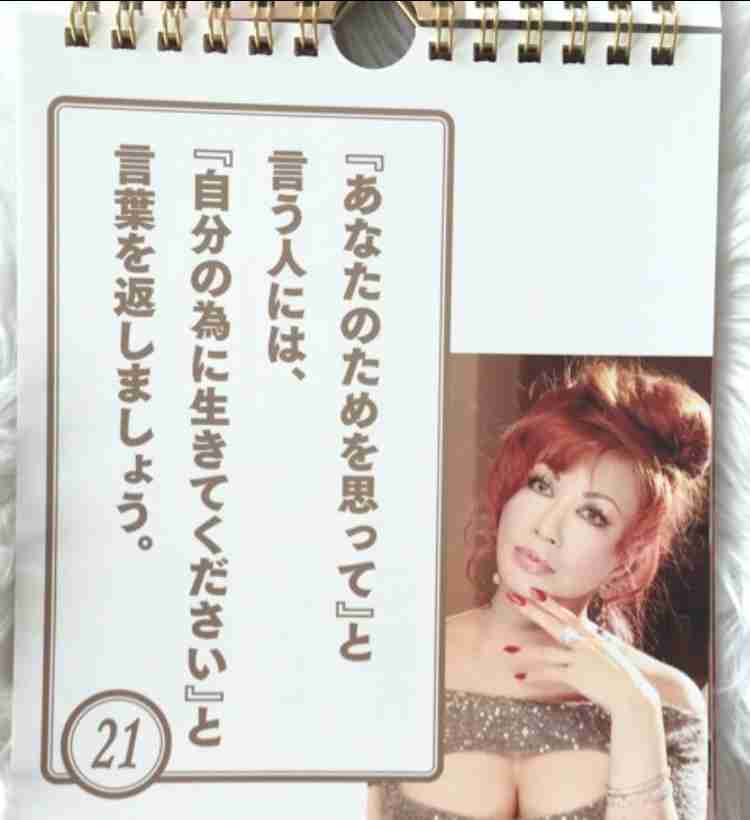 『あなたのためを思って』と
言う人には、
『自分の為に生きてください』と
言葉を返しましょう。
21